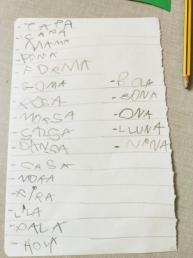 - TAPA
- CARA
- MAMA
- DONA
- GOMA
- ROSA
- MOSSA
- SALSA
- DANSA
- CASA
- MORA
- LILA
- PALA
- HOLA
- POLA
- BONA
- ONA
- LLUNA
- NINA